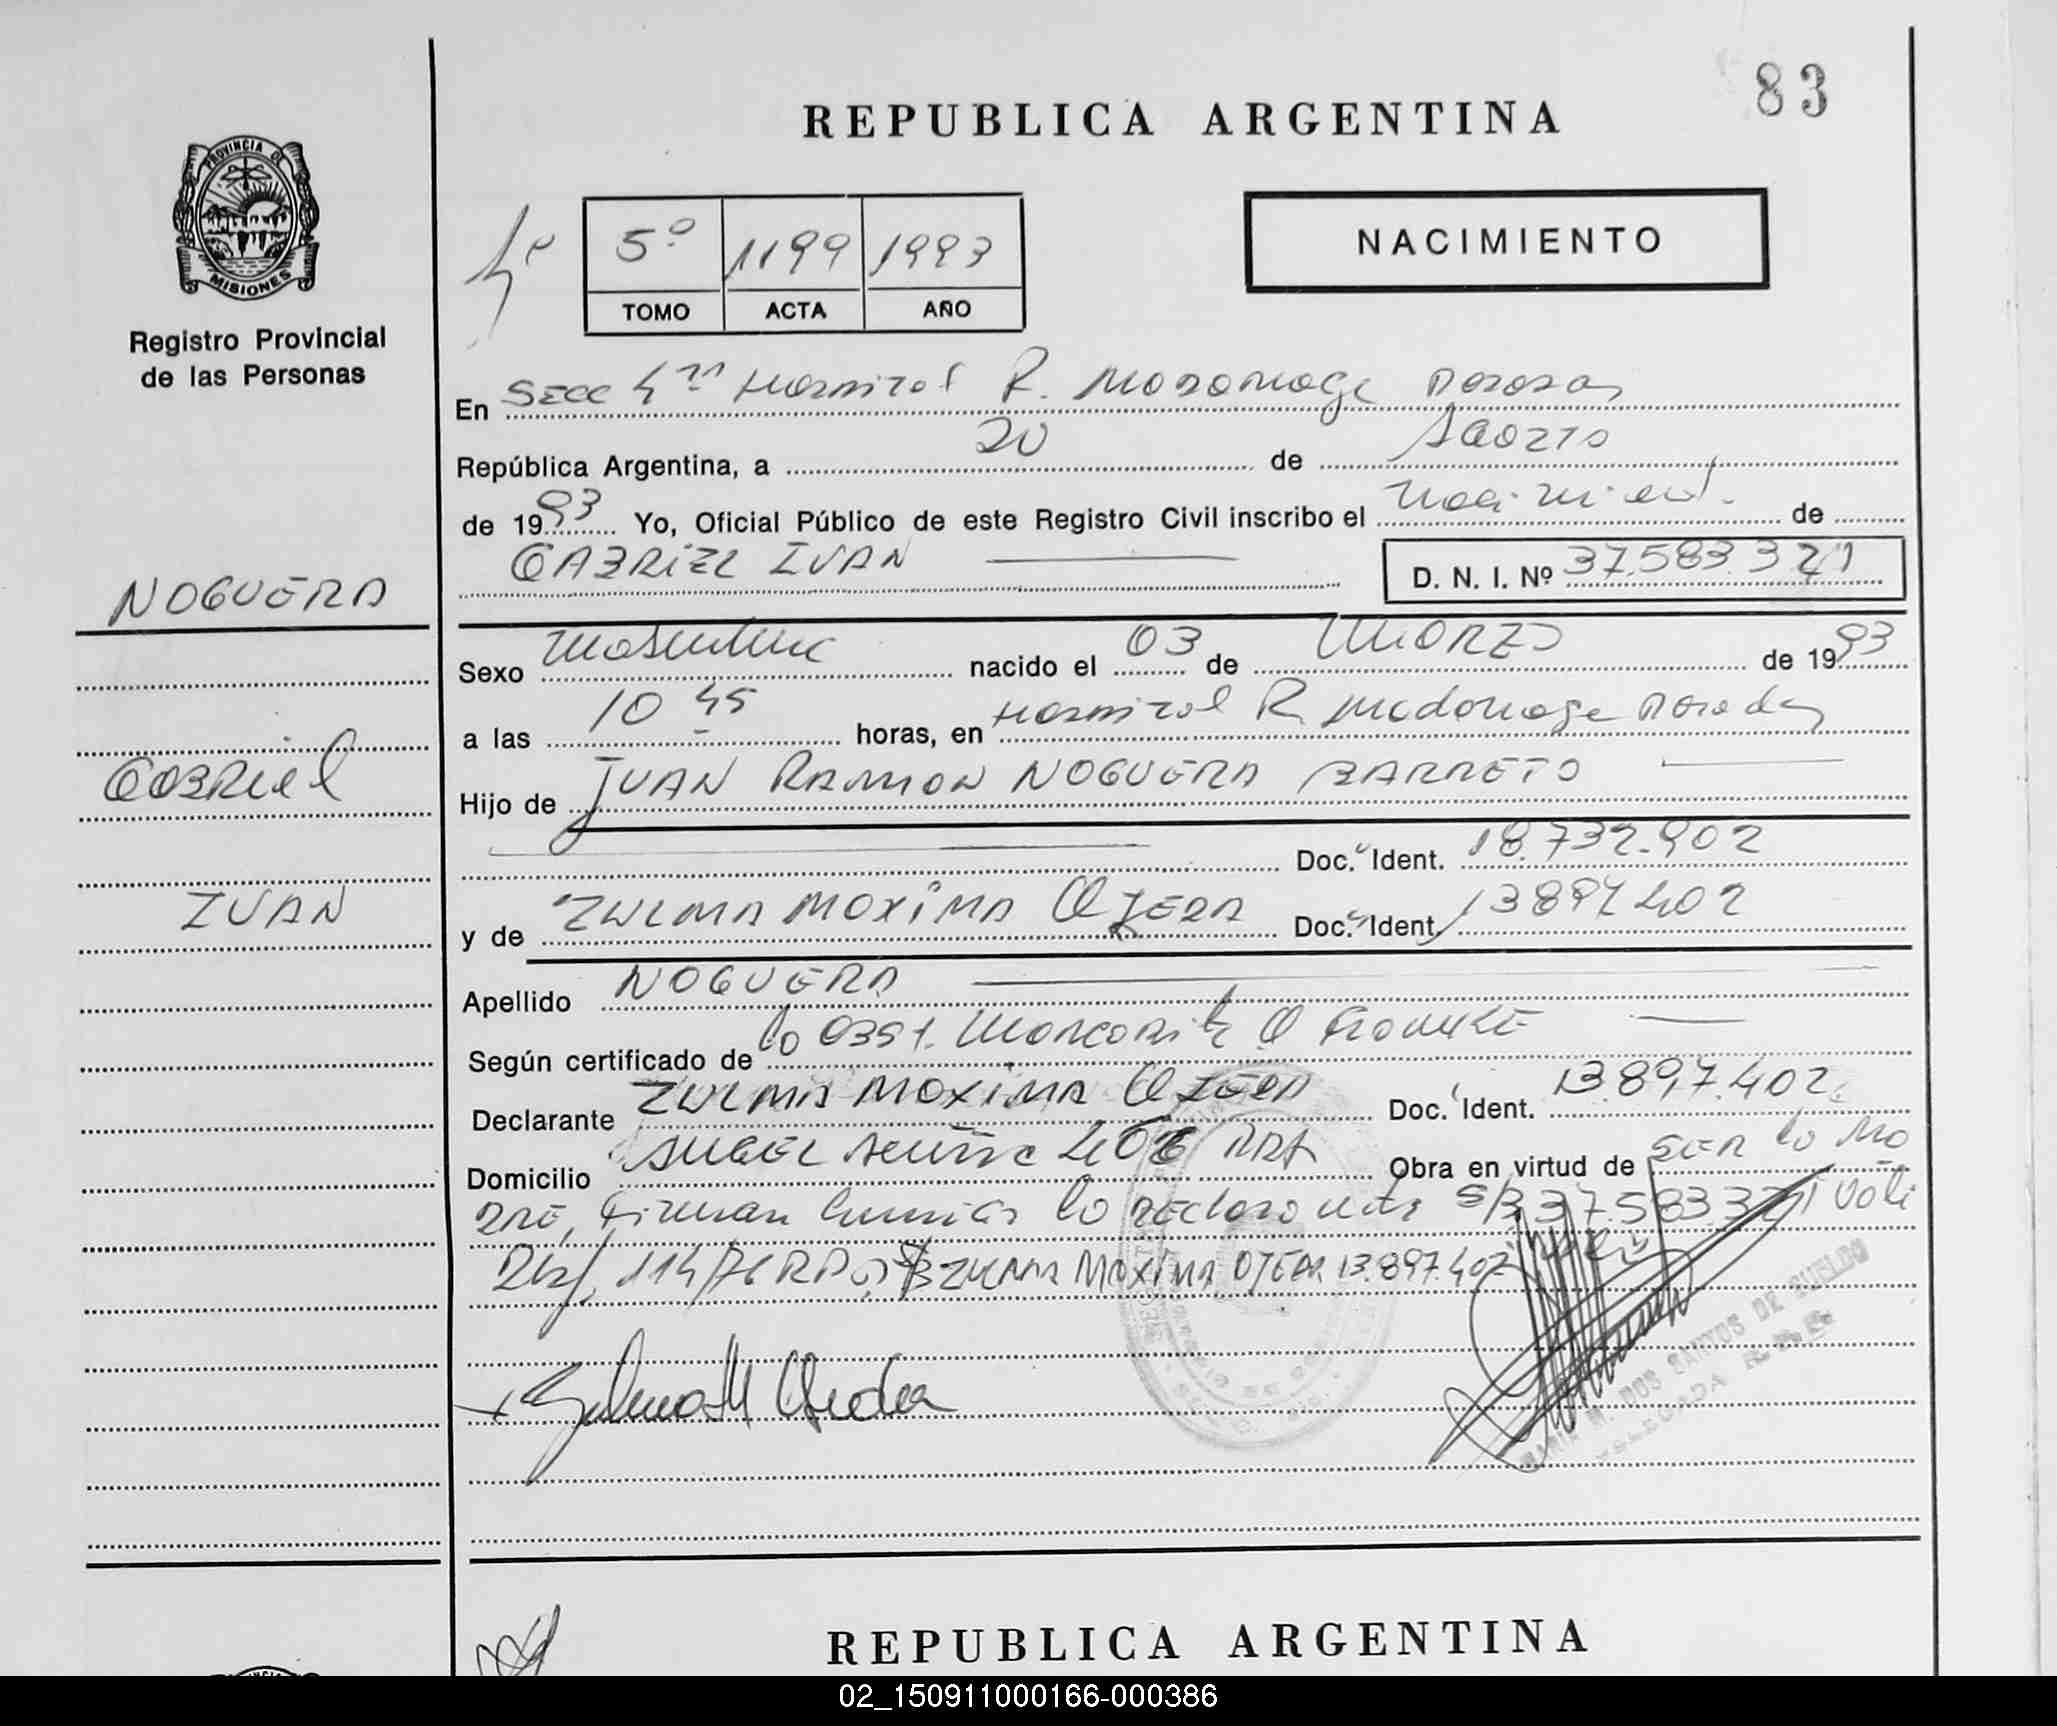 REPUBLICA ARGENTINA
83
PROVINCIA DE
MISIONES
Registro Provincial
de las Personas
4ª
5º 1199 1993
TOMO ACTA AÑO
NACIMIENTO
En SECC 4ta Hospital R. Madariaga Posadas
República Argentina, a 20 de Agosto
de 1993 Yo, Oficial Público de este Registro Civil inscribo el nacimient. de
GABRIEL IVAN
D. N. I. Nº 37.583.321
NOGUERA
Gabriel
IVAN
Sexo Masculino nacido el 03 de MARZO de 1993
a las 10 45 horas, en Hospital R Madariaga Posadas
Hijo de JUAN RAMON NOGUERA BARRETO
Doc. Ident. 18.732.902
y de ZULMA MAXIMA OJEDA Doc. Ident. 13897402
Apellido NOGUERA
Según certificado de la Obst. Margarita
Declarante ZULMA MAXIMA OJEDA Doc. Ident. 13.897.402
Domicilio ANGEL ACUÑA 406 Obra en virtud de SER la MA
DRE, Firman la declarante S/B 37.583.321 Vale
114/76 S/B ZULMA MAXIMA OJEDA 13.897.402 Vale
Zulma M Ojeda
MARIA M. DOS SANTOS DE SUELDO
DELEGADA
REPUBLICA ARGENTINA
02_150911000166-000386